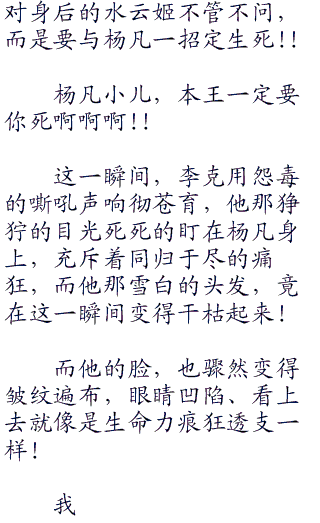 对身后的水云姬不管不问，
而是要与杨凡一招定生死!!
杨凡小儿，本王一定要
你死啊啊啊!!
这一瞬间，李克用怨毒
的嘶吼声响彻苍育，他那狰
狞的目光死死的盯在杨凡身
上，充斥着同归于尽的痛
狂，而他那雪白的头发，竟
在这一瞬间变得干枯起来!
而他的脸，也骤然变得
皱纹遍布，眼睛凹陷、看上
去就像是生命力痕狂透支一
样!
我